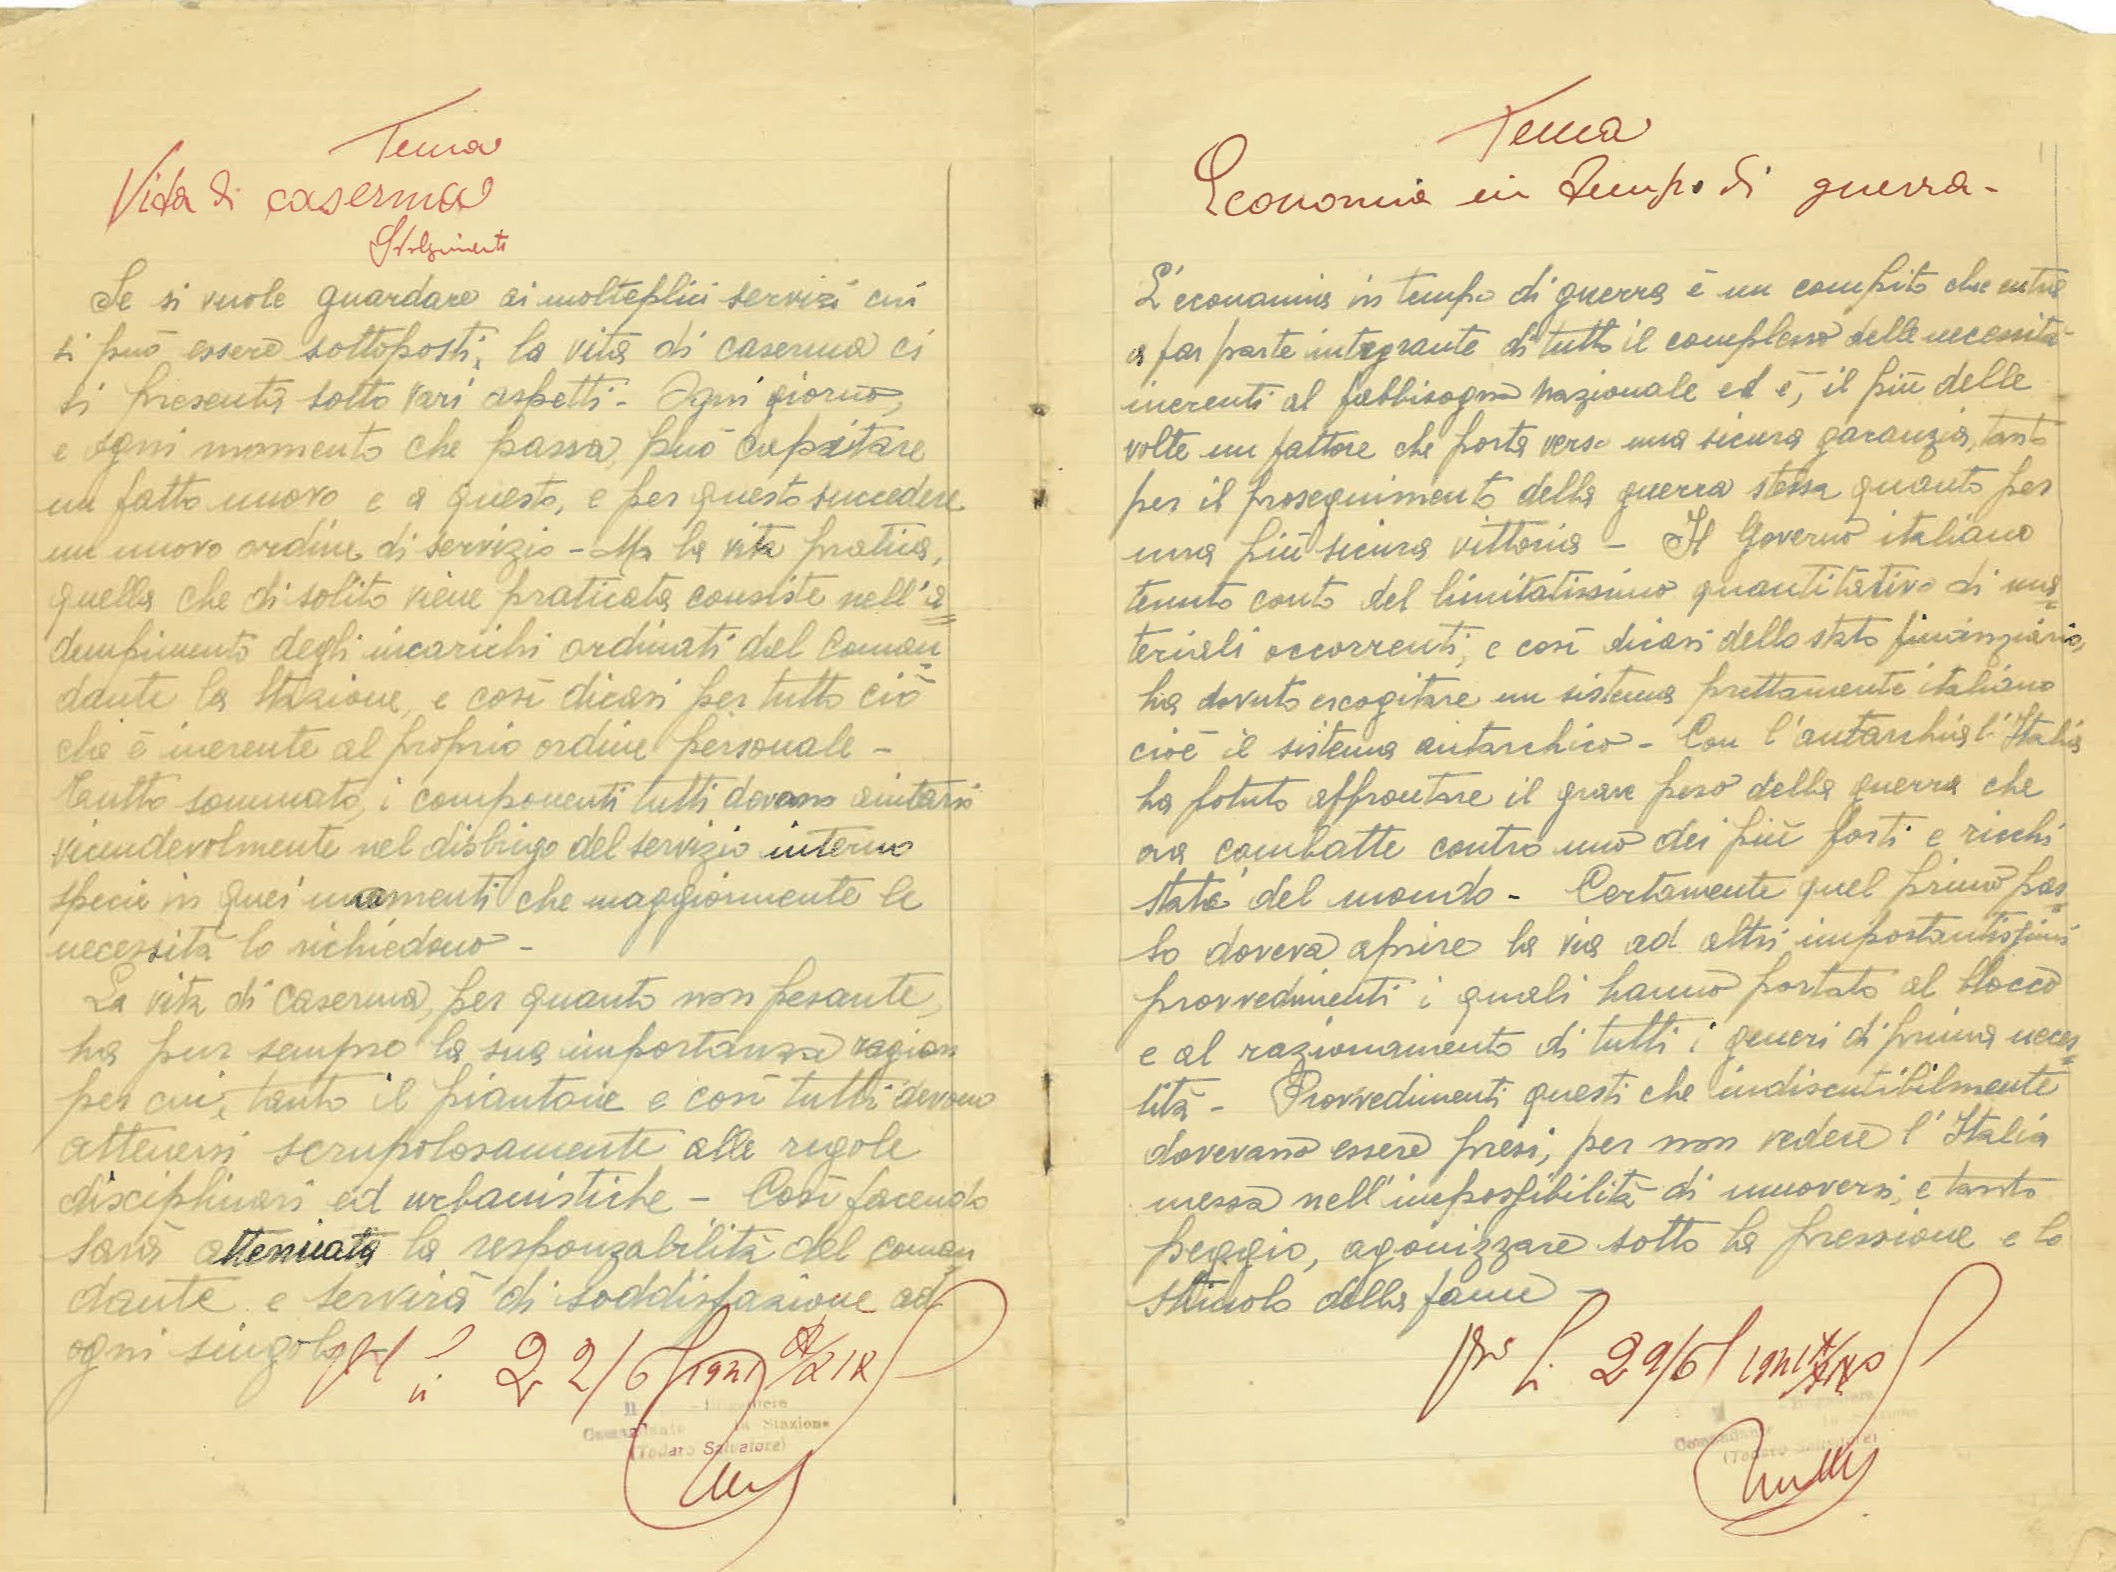 Tema
Vita di caserma
Svolgimento
Se si vuole guardare ai molteplici servizi cui
si può essere sottoposti, la vita di caserma ci
si presenta sotto vari aspetti - Ogni giorno,
e ogni momento che passa, può capitare
un fatto nuovo e a questo, e per questo succedere
un nuovo ordine di servizio - Ma la vita pratica,
quella che di solito viene praticata consiste nell'a=
dempimento degli incarichi ordinati dal Coman=
dante la Stazione, e così dicasi per tutto ciò
che è inerente al proprio ordine personale -
Tutto sommato, i componenti tutti devono aiutarsi
vicendevolmente nel disbrigo del servizio interno
specie in quei momenti che maggiormente le
necessità lo richiedono -
La vita di caserma, per quanto non pesante,
ha pur sempre la sua importanza ragion
per cui, tanto il piantone e così tutti devono
attenersi scrupolosamente alle regole
disciplinari ed urbanistiche - Così facendo
sarà attenuata la responzabilità del coman=
dante e servirà di soddisfazione ad
ogni singolo -
22/6/1941 XIX
Il Brigadiere
Comandante la Stazione
(Todaro Salvatore)
Tema
Economia in tempo di guerra -
L'economia in tempo di guerra è un compito che entra
a far parte integrante di tutto il complesso delle necessità
inerenti al fabbisogno nazionale ed è, il più delle
volte un fattore che porta verso una sicura garanzia, tanto
per il proseguimento della guerra stessa quanto per
una più sicura vittoria - Il Governo italiano
tenuto conto del limitatissimo quantitativo di ma=
teriali occorrenti, e così dicasi dello stato finanziario,
ha dovuto escogitare un sistema prettamente italiano
cioè il sistema autarchico - Con l'autarchia l'Italia
ha potuto affrontare il grave peso della guerra che
ora combatte contro uno dei più forti e ricchi
stati del mondo - Certamente quel primo pas=
so doveva aprire la via ad altri importantissimi
provvedimenti i quali hanno portato al blocco
e al razionamento di tutti i generi di prima neces=
sità - Provvedimenti questi che indiscutibilmente
dovevano essere presi, per non vedere l'Italia
messa nell'impossibilità di muoversi, e tanto
peggio, agonizzare sotto la pressione e lo
stimolo della fame -
29/6/1941
Il Brigadiere
Comandante la Stazione
(Todaro Salvatore)